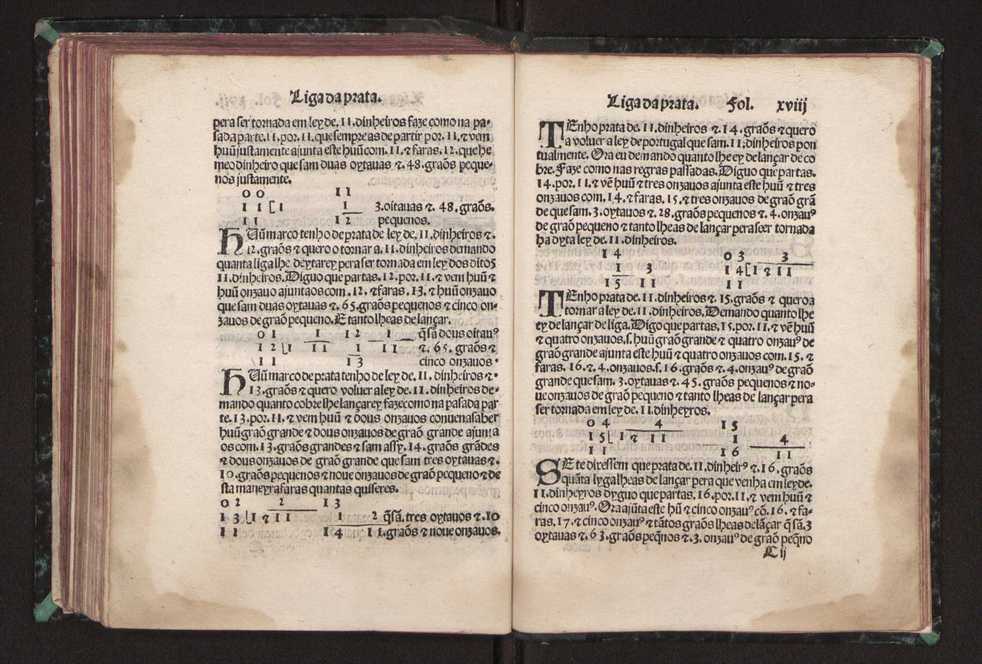 Liga da prata.
pera ser tornada em ley de. 11. dinheiros faze como na pa-
sada parte. 11. por. 11. que sempre as de partir por. 11. ⁊ vem
huũ justamente ajunta este huũ com. 11. ⁊ faras. 12. que he
meo dinheiro que sam duas oytauas ⁊. 48. graõs peque-
nos justamente.
0 0 11
1 1 [1 1 3. oitauas ⁊. 48. graõs.
1 1 1 2 pequenos.
HUũ marco tenho de prata de ley de. 11. dinheiros ⁊.
12. graõs ⁊ quero o tornar a. 11. dinheiros demando
quanta liga lhe deytarey pera ser tornada em ley dos ditos
11. dinheiros. Diguo que partas. 12. por. 11. ⁊ vem huũ ⁊
huũ onzauo ajuntaos com. 12. ⁊ faras. 13. ⁊ huũ onzauo
que sam duas oytauas ⁊. 65. graõs pequenos ⁊ cinco on-
zauos de graõ pequeno. E tanto lhe as de lançar.
0 1 1 1 2 1 q̃sã dous oitauꝰ
1 2 [1 11 1 11 ⁊. 65. graõs ⁊
1 1 1 3 cinco onzauos.
HUũ marco de prata tenho de ley de. 11. dinheiros ⁊.
13. graõs ⁊ quero voluer a ley de. 11. dinheiros de-
mando quanto cobre lhe lançarey faze como na pasada par
te. 13. por. 11. ⁊ vem huũ ⁊ dous onzauos conuen a saber
huũ graõ grande ⁊ dous onzauos de graõ grande ajunta
os com. 13. graõs grandes ⁊ sam assy. 14. graõs grãdes
⁊ dous onzauos de graõ grande que sam tres oytauas ⁊.
10. graõs pequenos ⁊ noue onzauos de graõ pequeno ⁊ de
sta maneyra faras quantas quiseres.
0 2 2 1 3
1 3 [1 ⁊ 11 1 2 q̃sã. tres oytauos ⁊. 10
1 1 1 4 11. graõs ⁊ noue onzauos.
Liga da prata. Fol. xviij
TEnho prata de. 11. dinheiros ⁊. 14. graõs ⁊ quero
a voluer a ley de portugal que sam. 11. dinheiros pon
tualmente. Ora eu demando quanto lhe ey de lançar de co
bre. Faze como nas regras passadas. Diguo que partas.
14. por. 11. ⁊ vẽ huũ ⁊ tres onzauos ajunta este huũ ⁊ tres
onzauos com. 14. ⁊ faras. 15. ⁊ tres onzauos de graõ grã
de que sam. 3. oytauos ⁊. 28. graõs pequenos ⁊. 4. onzauꝰ
de graõ pequeno ⁊ tanto lhe as de lançar pera ser tornada
ha dyta ley de. 11. dinheiros.
1 4 0 3 3
1 3 1 4 [1 ⁊ 11
1 5 11 1 1
TEnho prata de. 11. dinheiros ⁊. 15. graõs ⁊ quero a
tornar a ley de. 11. dinheiros. Demando quanto lhe
ey de lançar de liga. Digo que partas. 15. por. 11. ⁊ vẽ huũ
⁊ quatro onzauos. s. huũ graõ grande ⁊ quatro onzauꝰ de
graõ grande ajunta este huũ ⁊ quatro onzauos com. 15. ⁊
faras. 16. ⁊. 4. onzauos. s. 16. graõs ⁊. 4. onzauꝰ de graõ
grande que sam. 3. oytauas ⁊. 45. graõs pequenos ⁊ no-
ue onzauos de graõ pequeno ⁊ tanto lhe as de lançar pera
ser tornada em ley de. 11. dinheyros.
0 4 4 1 5
1 5 [1 ⁊ 11 1 4
1 1 1 6 11
SE te dissessem que prata de. 11. dinheirꝰ ⁊. 16. graõs
quãta lyga lhe as de lançar pera que venha em ley de.
11. dinheyros dyguo que partas. 16. por. 11. ⁊ vem huũ ⁊
cinco onzauꝰ. Ora ajuta este hũ ⁊ cinco onzauꝰ cõ. 16. ⁊ fa-
ras. 17. ⁊ cinco onzauꝰ ⁊ tãtos graõs lhe as de lãçar q̃ sã. 3
oytauas ⁊. 63. graõs peq̃nos ⁊. 3. onzauꝰ de graõ peq̃no
C ij